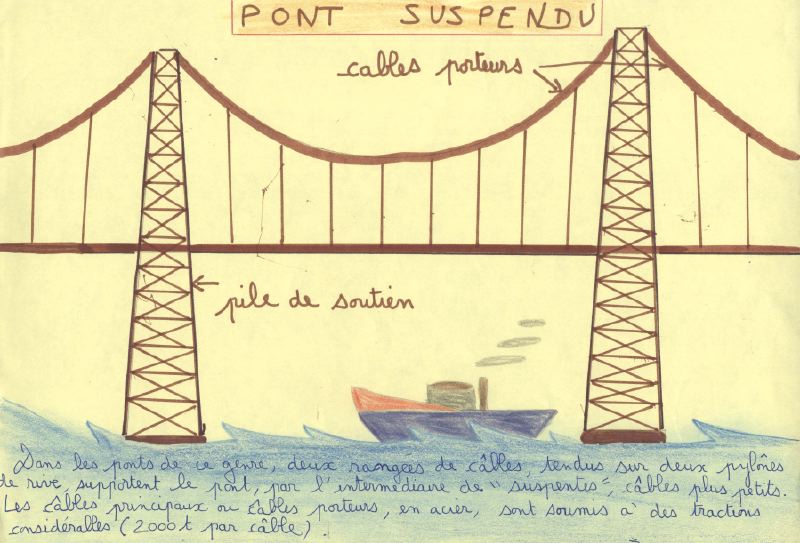 PONT SUSPENDU
câbles porteurs
pile de soutien
Dans les ponts de ce genre, deux rangées de câbles, tendus sur deux pylônes
de rive, supportent le pont, par l'intermédiaire de "suspentes", câbles plus petits.
Les câbles principaux ou câbles porteurs, en acier, sont soumis à des tractions
considérables (2000t par câble).